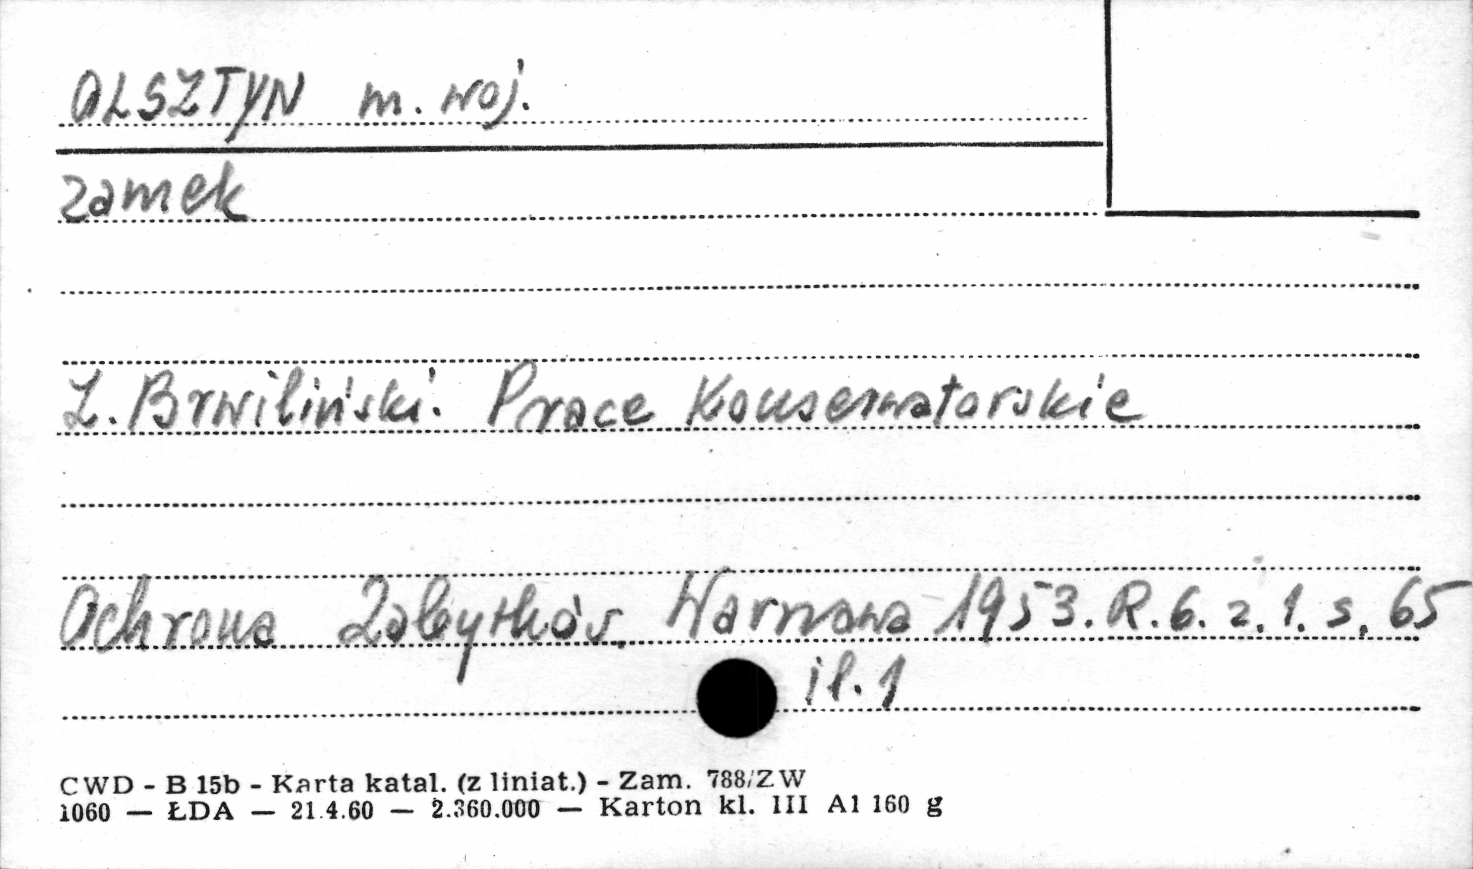 OLSZTYN m. woj.
zamek
Z. Brwiliński. Prace Konserwatorskie
Ochrona Zabytków. Warszawa 1953. R. 6. z. 1. s. 65
il. 1
CWD - B 15b - Karta katal. (z liniat.) - Zam. 788/ZW
1060 — ŁDA — 21.4.60 — 2.360.000 — Karton kl. III A1 160 g